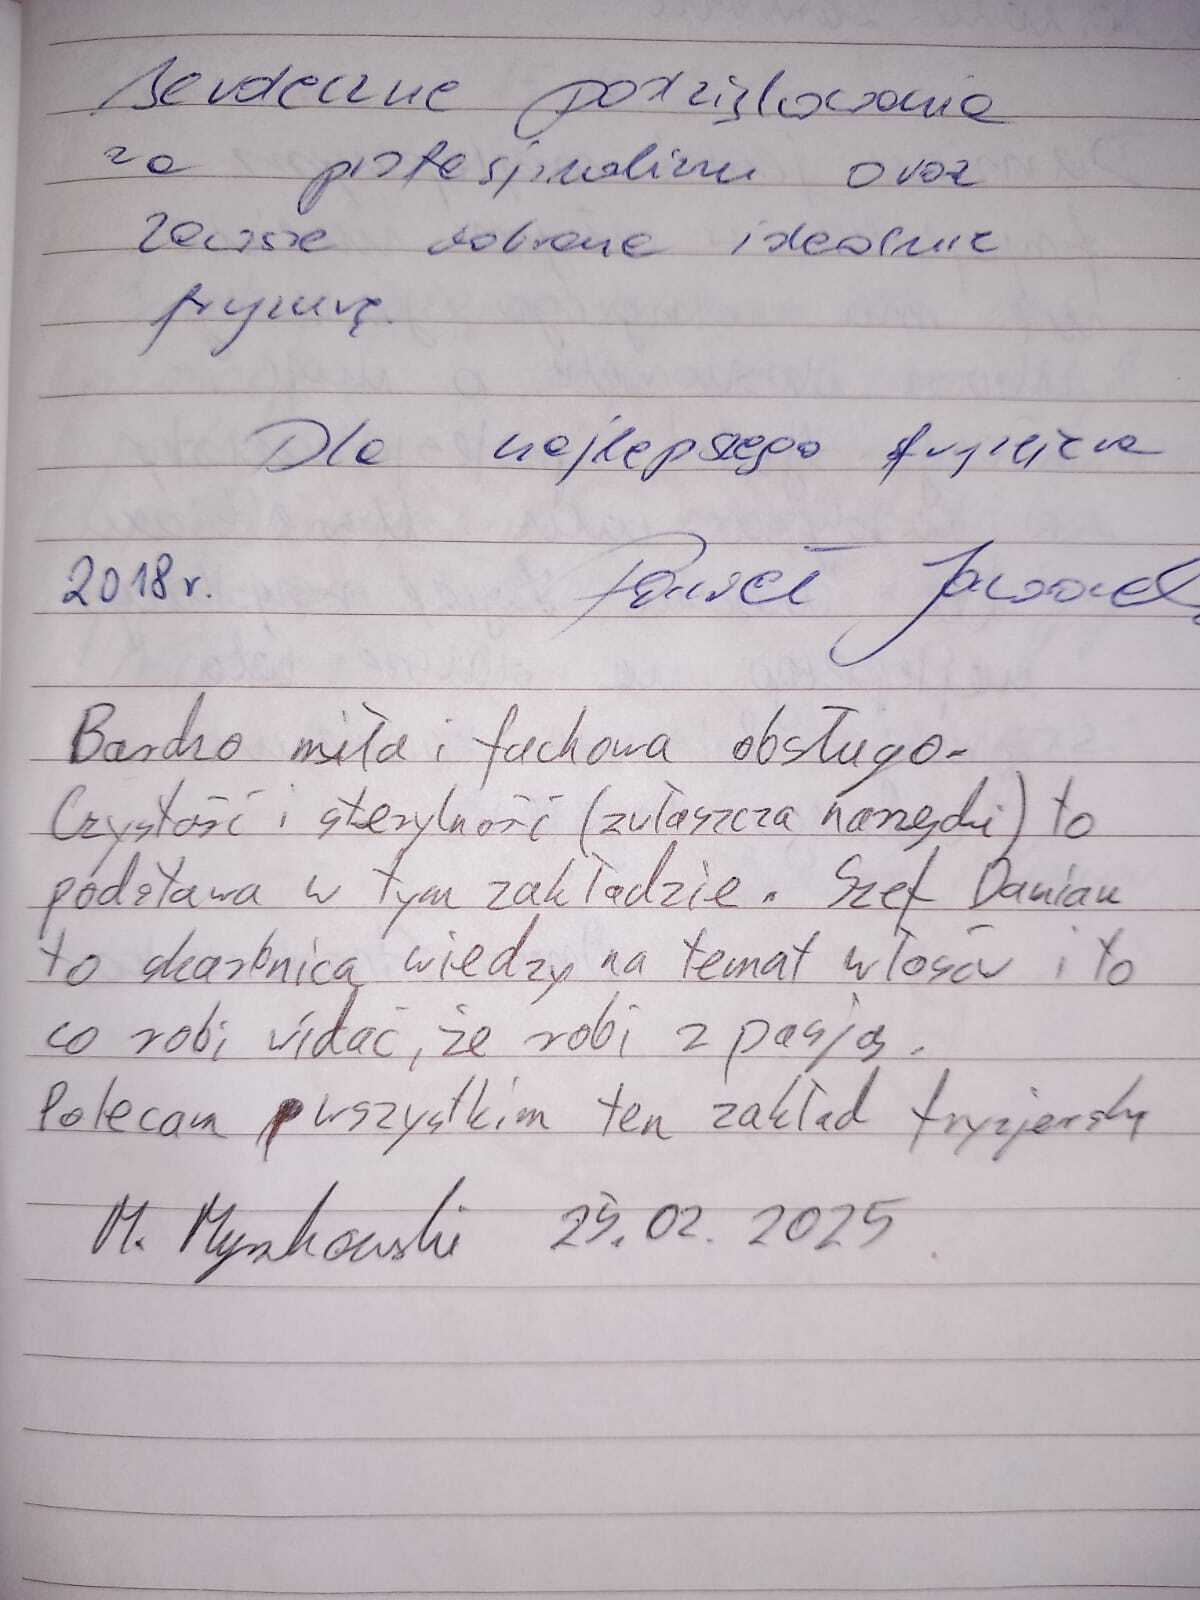 Serdeczne podziękowania
za profesjonalizm oraz
zawsze dobraną idealnie
fryzurę.
Dla najlepszego fryzjera
2018r. Paweł
Bardzo miła i fachowa obsługa.
Czystość i sterylność (zwłaszcza narzędzi) to
podstawa w tym zakładzie. Szef Damian
to skarbnica wiedzy na temat włosów i to
co robi widać, że robi z pasją.
Polecam wszystkim ten zakład fryzjerski
M. Myszkowski 25.02.2025